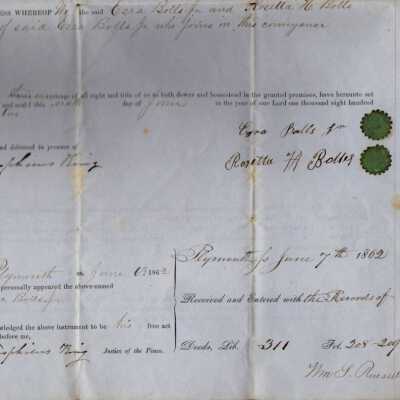 ESS WHEREOF We the said Ezra Bolls Jr and Rosetta H Bolls
of said Ezra Bolls Jr who joins in this conveyance
of all right and title of or to both dower and homestead in the granted premises, have hereunto set
and seals this sixth day of June in the year of our Lord one thousand eight hundred
two
Ezra Bolls Jr
and delivered in presence of
ephus King
Rosetta H Bolles
Plymouth ss June 7th 1862
Plymouth ss June 6 1862
personally appeared the above-named
a Bolls Jr
Received and Entered with the Records of
ledged the above instrument to be his free act
before me,
ephus King Justice of the Peace.
Deeds, Lib. 311 Fol. 208-209
Wm S. Russell